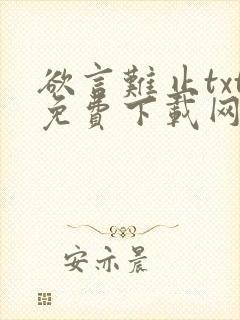 欲言難止txt
免費下載网
安亦晨